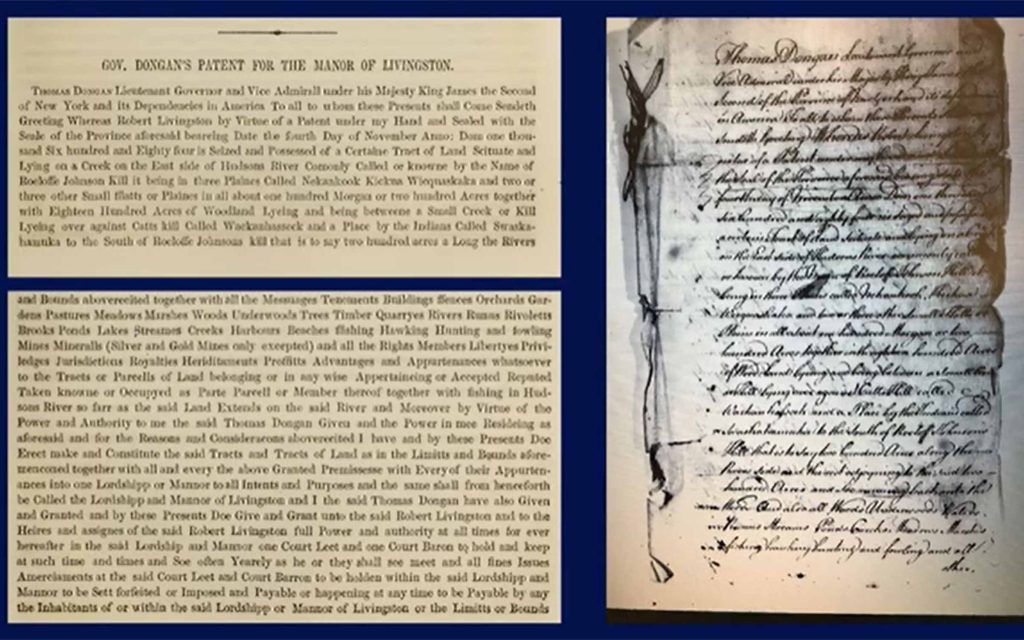 GOV. DONGAN'S PATENT FOR THE MANOR OF LIVINGSTON.
THOMAS DONGAN Lieutenant Governor and Vice Admirall under his Majesty King James the Second
of New York and its Dependencies in America To all to whom these Presents shall Come Sendeth
Greeting Whereas Robert Livingston by Virtue of a Patent under my Hand and Sealed with the
Seale of the Province aforesaid bearing Date the fourth Day of November Anno: Dom one thou-
sand Six hundred and Eighty four is Seized and Possessed of a Certaine Tract of Land Scituate and
Lying on a Creek on the East side of Hudsons River Comonly Called or knowne by the Name of
Roeloffe Johnson Kill it being in three Plaines Called Nekankook Kickua Wiequaskaka and two or
three other Small fflatts or Plaines in all about one hundred Morgan or two hundred Acres together
with Eighteen Hundred Acres of Woodland Lyeing and being betweene a Small Creek or Kill
Lyeing over against Catts kill Called Wackanhasseck and a Place by the Indians Called Swaska-
hamuka to the South of Roeloffe Johnsons kill that is to say two hundred acres a Long the Rivers
and Bounds aboverecited together with all the Messuages Tenements Buildings ffences Orchards Gar-
dens Pastures Meadows Marshes Woods Underwoods Trees Timber Quarryes Rivers Runns Rivoletts
Brooks Ponds Lakes Streames Creeks Harbours Beaches fishing Hawking Hunting and fowling
Mines Mineralls (Silver and Gold Mines only excepted) and all the Rights Members Libertyes Privi-
ledges Jurisdictions Royalties Heriditaments Proffitts Advantages and Appurtenances whatsoever
to the Tracts or Parcells of Land belonging or in any wise Appertaineing or Accepted Reputed
Taken knowne or Occupyed as Parte Parcell or Member thereof together with fishing in Hud-
sons River so farr as the said Land Extends on the said River and Moreover by Virtue of the
Power and Authority to me the said Thomas Dongan Given and the Power in mee Resideing as
aforesaid and for the Reasons and Consideracons aboverecited I have and by these Presents Doe
Erect make and Constitute the said Tracts and Tracts of Land as in the Limitts and Bounds afore-
menconed together with all and every the above Granted Premissesse with Every of their Appurten-
ances into one Lordshipp or Mannor to all Intents and Purposes and the same shall from henceforth
be Called the Lordshipp and Mannor of Livingston and I the said Thomas Dongan have also Given
and Granted and by these Presents Doe Give and Grant unto the said Robert Livingston and to the
Heires and assignes of the said Robert Livingston full Power and authority at all times for ever
hereafter in the said Lordship and Mannor one Court Leet and one Court Baron to hold and keep
at such time and times and Soe often Yearely as he or they shall see meet and all fines Issues
Amerciaments at the said Court Leet and Court Barron to be holden within the said Lordshipp and
Mannor to be Sett forfeited or Imposed and Payable or happening at any time to be Payable by any
the Inhabitants of or within the said Lordshipp or Mannor of Livingston or the Limitts or Bounds
Thomas Dongan Lieutenant Governor and
Vice Admiral under his Majesty King James the
Second of the Province of New York and its
in America To all to whom these Presents
Sendeth Greeting Whereas Robert
of a Patent under my
the Seal of the Province aforesaid bearing
fourth day of November Anno Dom one
Six hundred and eighty four is seized and
a certain Tract of Land Scituate and lying on a
on the East side of Hudsons River commonly
or known by the Name of Roeloff Johnson Kill it
being in three Plaines called
and two or three other Small
Plains in all about one hundred Morgan or two
hundred Acres together with eighteen hundred Acres
of Wood Land lying and being between a small
Kill lying over against Catts Kill called
and a Place by the Indians called
to the South of Roeloff Johnsons
Kill that is to say two hundred Acres along the
River side and the
hundred Acres and Soe running back into the
Woods And also all Woods Underwoods
Streams Ponds Creeks Meadows Marshes
fishing hawking hunting and fowling and all
other